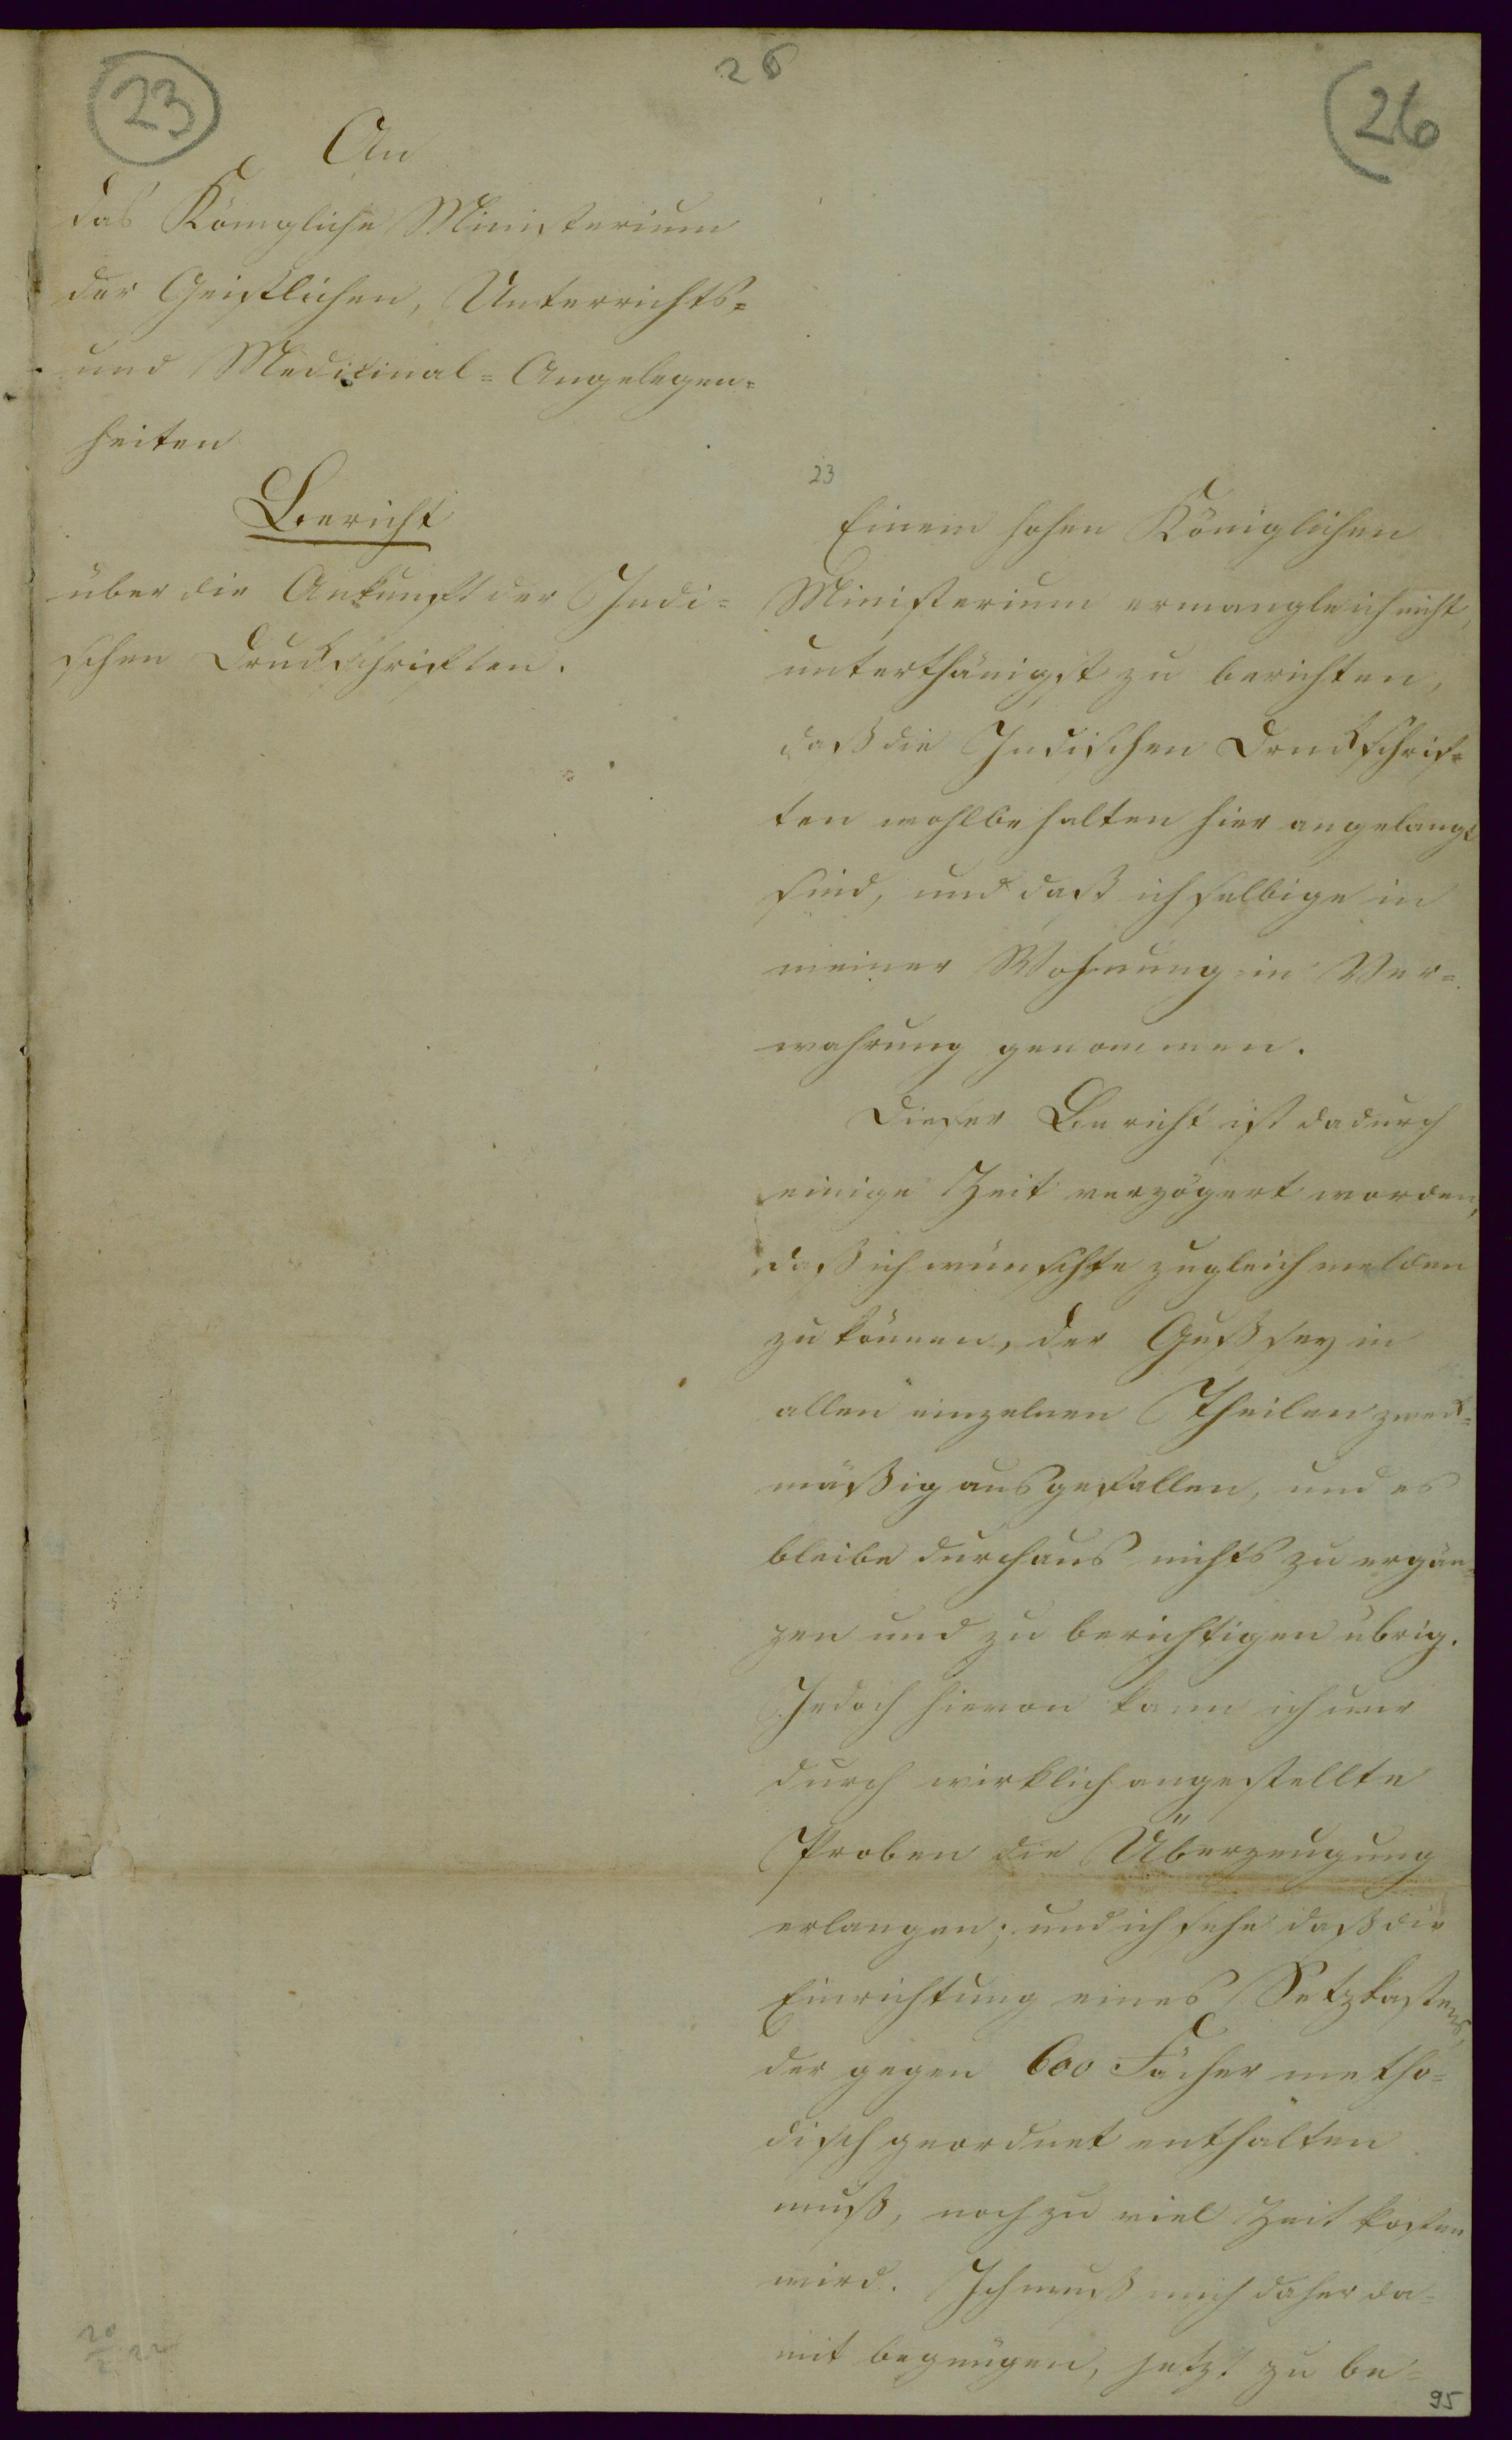 23
26
26
An
das Königliche Ministerium
der Geistlichen, Unterrichts-
und Medicinal-Angelegen-
heiten
Bericht
über die Ankunft der Indi-
schen Druckschriften.
23
Einem hohen Königlichen
Ministerium ermangle ich nicht,
unterthänigst zu berichten,
daß die Indischen Druckschrif-
ten wohlbehalten hier angelangt
sind, und daß ich selbige in
meiner Wohnung in Ver-
wahrung genommen.
Dieser Bericht ist dadurch
einige Zeit verzögert worden,
daß ich wünschte zugleich melden
zu können, der Guß sey in
allen einzelnen Theilen zweck-
mäßig ausgefallen, und es
bleibe durchaus nichts zu ergän-
zen und zu berichtigen übrig.
Jedoch hievon kann ich nur
durch wirklich angestellte
Proben die Überzeugung
erlangen; und ich sehe daß die
Einrichtung eines Setzkastens,
der gegen 600 Fächer metho-
disch geordnet enthalten
muß, noch zu viel Zeit kosten
wird. Ich muß mich daher da-
mit begnügen, jetzt zu be-
95